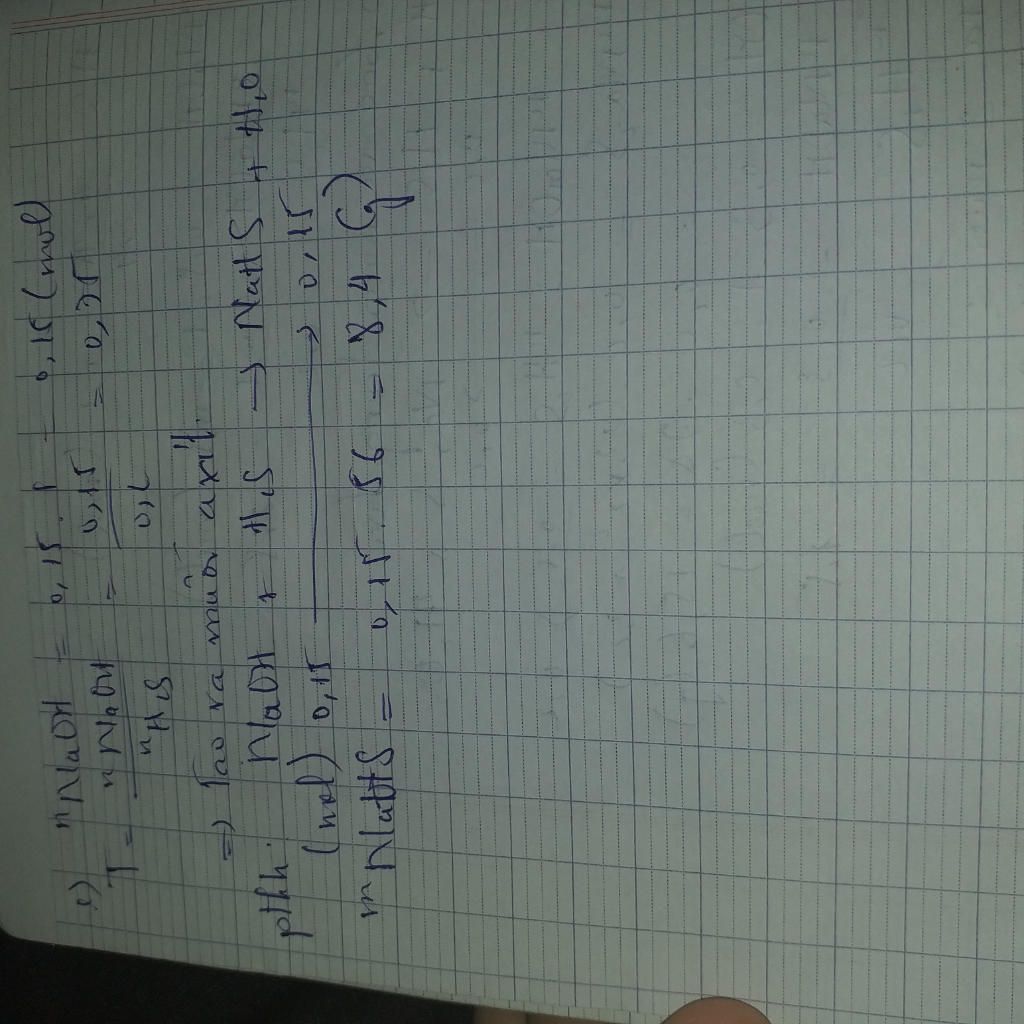 e) nNaOH = 0,15 . 1 = 0,15 (mol)
T = nNaOH / nH2S = 0,15 / 0,2 = 0,75
=> Tạo ra muối axit.
pthh: NaOH + H2S → NaHS + H2O
(mol) 0,15 → 0,15
mNaHS = 0,15 . 56 = 8,4 (g)